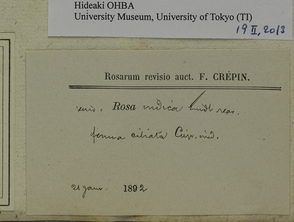 Hideaki OHBA
University Museum, University of Tokyo (TI)
19 II, 2013
Rosarum revisio auct. F. CRÉPIN.
Rosa indica Lindl.
forma ciliata Crép. ined.
21 janv. 1892